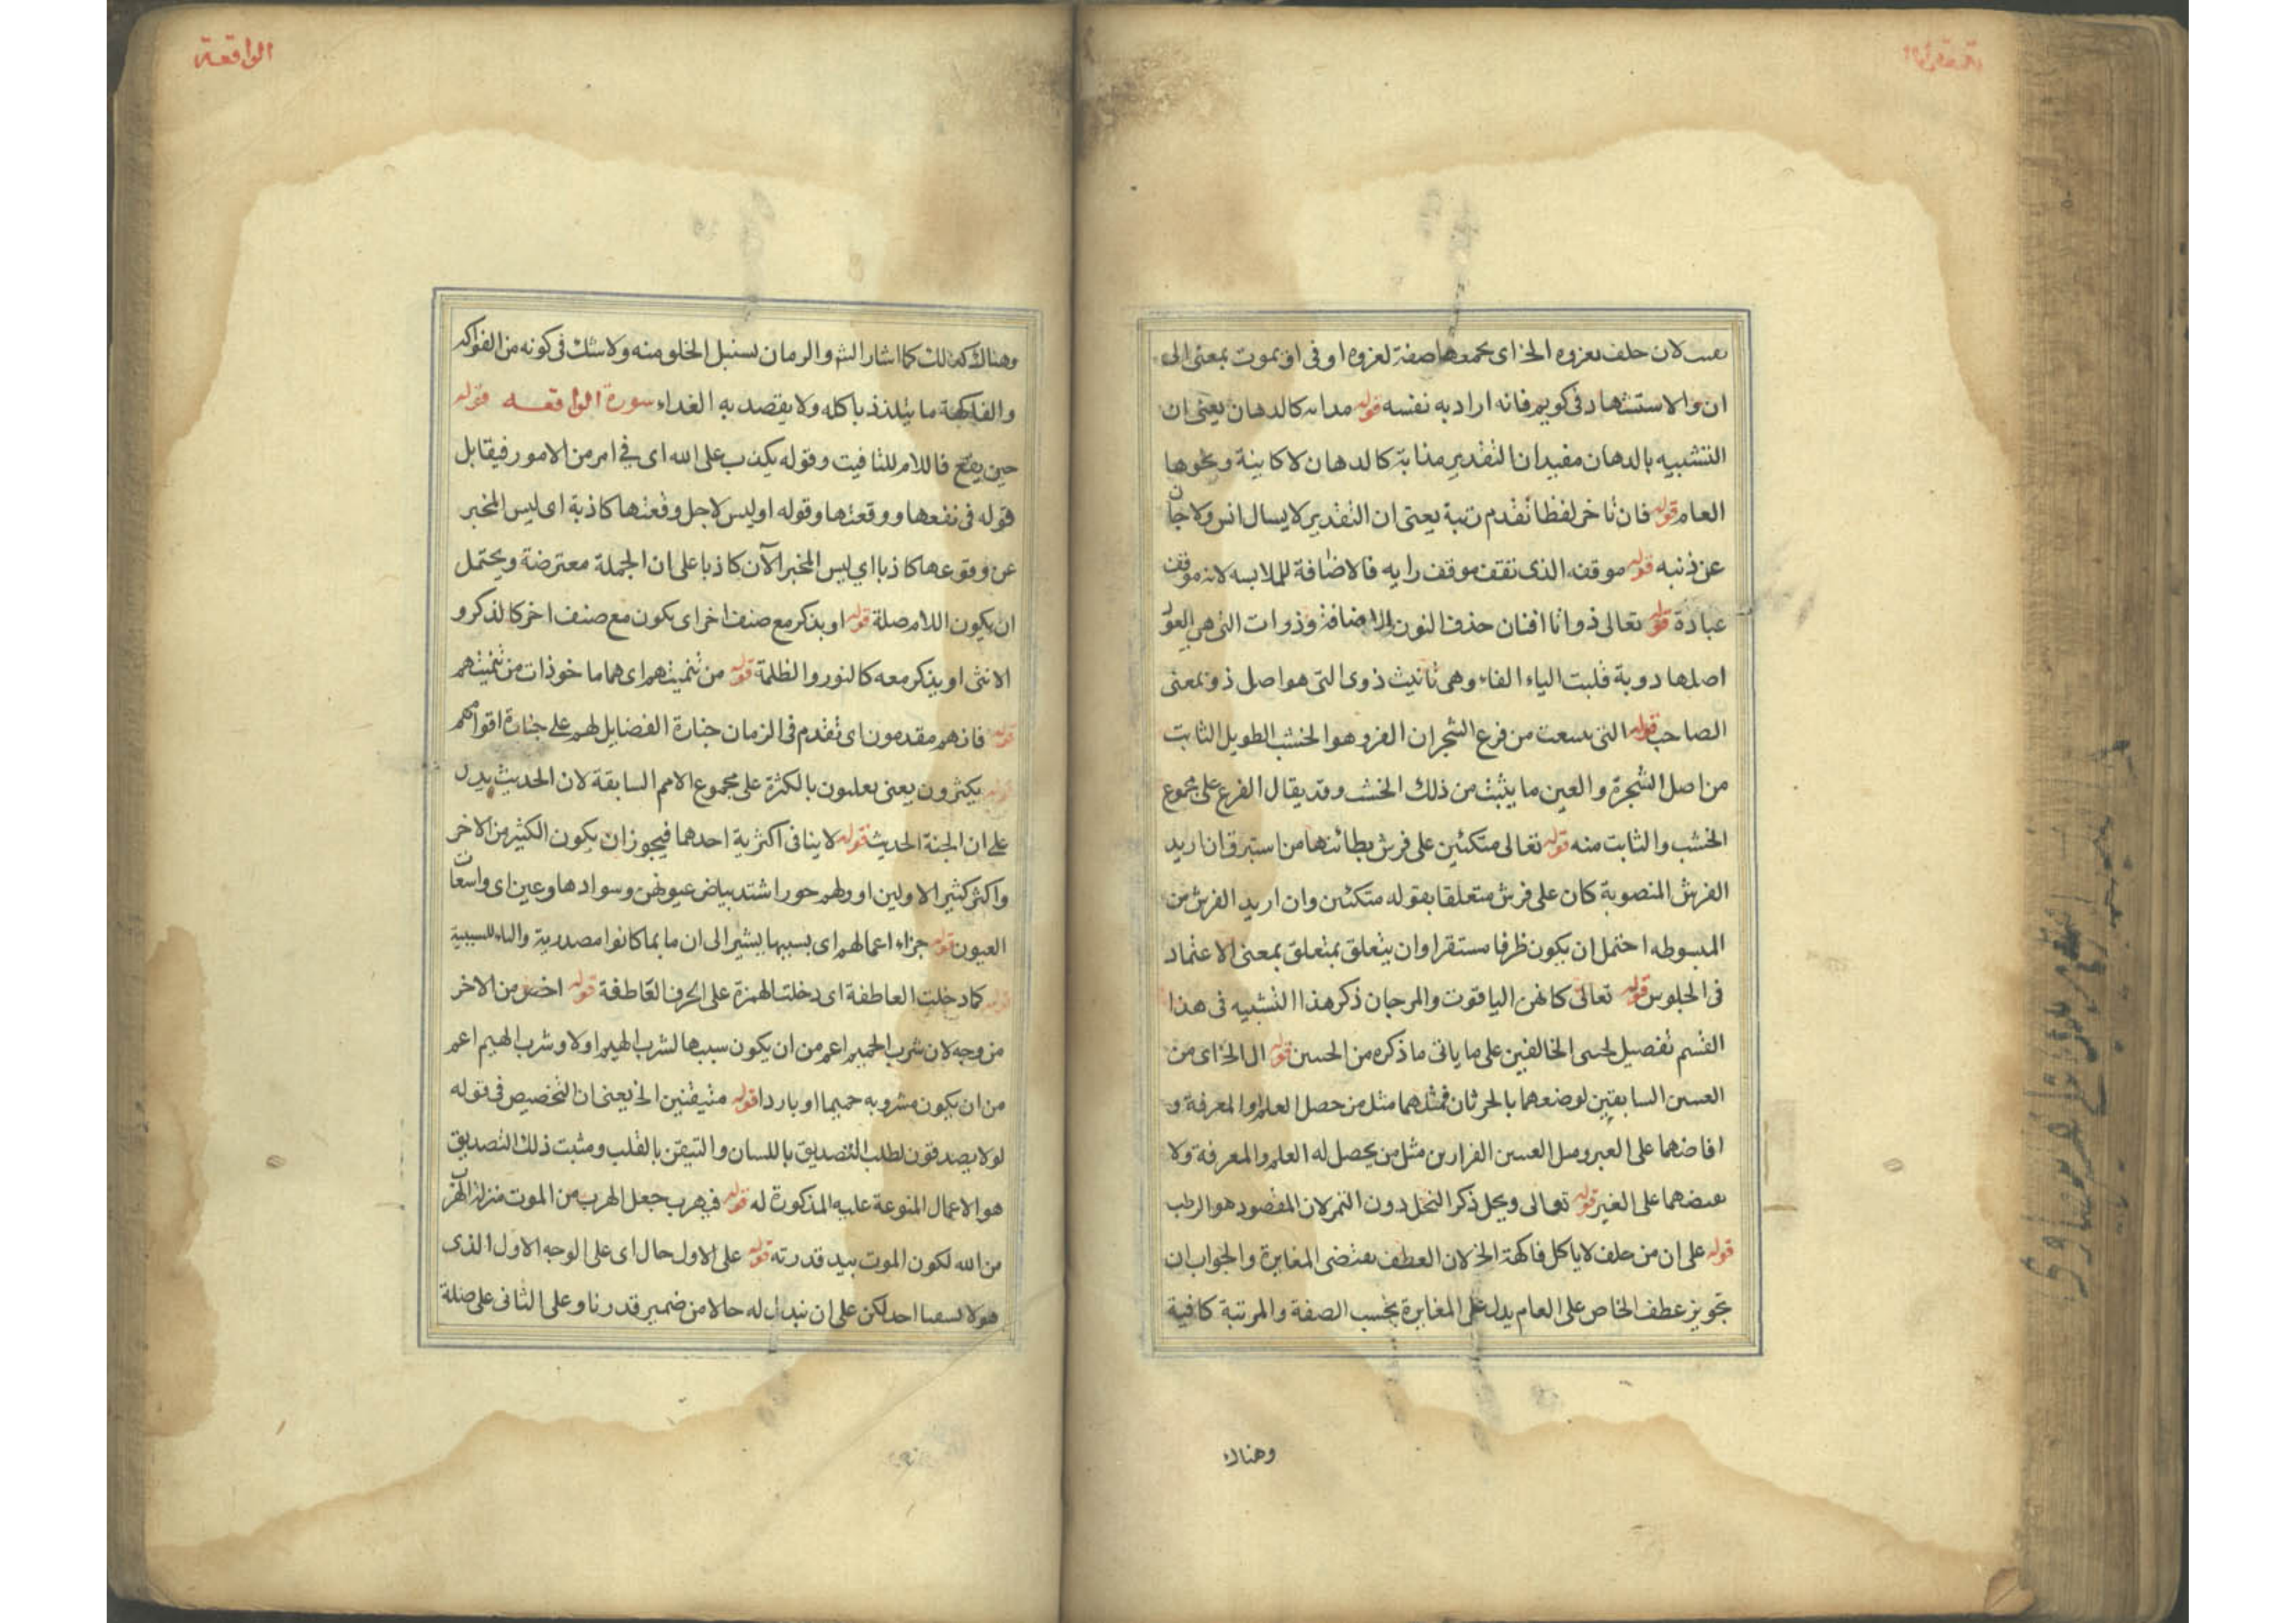 لان حلف الخ اى صفة لغزوه او فى اى بموت بمعنى الى
ان والاستشهاد فى كويم فانه اراد به نفسه قوله كالدهان يعنى ان
التشبيه بالدهان مفيد ان التقدير مذابة كالدهان لا كاينة ونحوها
العام قوله فان تاخر لفظا تقدم رتبة يعنى ان التقدير لا يسال انس ولا جان
عن ذنبه قوله موقفه الذى تقف موقف رايه فالاضافة للملابسه لانه موقف
عبادة قوله تعالى ذواتا افنان حذف النون للاضافة وذوات التى هى
اصلها دوية قلبت الياء الفاء وهى تانيث ذوى التى هو اصل ذو بمعنى
الصاحب قوله التى من فرع الشجر ان الفرع هو الخشب الطويل الثابت
من اصل الشجرة والعين ما ينبت من ذلك الخشب وقد يقال الفرع على مجموع
الخشب والثابت منه قوله تعالى متكئين على فرش بطائنها من استبرق ان اريد
الفرش المنصوبة كان على فرش متعلقا بقوله متكئين وان اريد الفرش من
المبسوطه احتمل ان يكون ظرفا مستقرا وان يتعلق بمتعلق بمعنى الاعتماد
فى الجلوس قوله تعالى كانهن الياقوت والمرجان ذكر هذا التشبيه فى هذا
القسم تفصيل الخالفين على ما ياتى ما ذكره من الحسن قوله الخ اى من
السابقتين لوصفهما بالجريان فمثلهما مثل من حصل العلم والمعرفة و
افاضهما على الغير ومثل مثل من يحصل له العلم والمعرفة ولا
على الغير قوله تعالى ونخل ذكر النخل دون التمر لان المقصود هو الرطب
قوله على ان من حلف لا ياكل فاكهة الخ لان العطف يقتضى المغايرة والجواب ان
تجويز عطف الخاص على العام يدل على المغايرة بحسب الصفة والمرتبة كافية
وهناك
الواقعة
وهناك كذلك كما اشار والرمان ولا شك فى كونه من الفواكه
والفاكهة ما يتلذذ باكله ولا يقصد به الغداء سورة الواقعه قوله
حين يقع فاللام للتاقيت وقوله يكذب على الله اى فى امر من الامور فيقابل
قوله فى نفعها ووقعتها وقوله او ليس لاجل وقعتها كاذبة اى ليس المخبر
عن وقوعها كاذبا اى ليس المخبر الآن كاذبا على ان الجملة معترضة ويحتمل
ان يكون اللام صلة قوله او يذكر مع صنف اخر اى يكون مع صنف اخر كالذكر و
الانثى او يذكر معه كالنور والظلمة قوله من اى هما ماخوذات من
قوله فانهم مقدمون اى تقدم فى الزمان الفضايل لهم على اقوامهم
قوله يكثرون يعنى يغلبون بالكثرة على مجموع الامم السابقة لان الحديث يدل
على ان الجنة الحديث قوله لا ينافى اكثرية احدهما فيجوز ان يكون الكثير من الاخر
واكثر كثير الاولين او ولهم حور اشتد بياض عيونهن وسوادها وعين اى واسعات
العيون قوله جزاء اعمالهم اى بسببها يشير الى ان ما بما كانوا مصدرية والباء للسببية
قوله كما دخلت العاطفة اى دخلت الهمزة على الحرف العاطفة قوله اخص من الاخر
من وجه لان شرب الحميم اعم من ان يكون سببها لشرب الهيم اولا وشرب الهيم اعم
من ان يكون مشروبه حميما او باردا قوله متيقنين الخ يعنى ان التخصيص فى قوله
لولا يصدقون لطلب التصديق باللسان والتيقن بالقلب ومثبت ذلك التصديق
هو الاعمال المنوعة عليه المذكورة له قوله فيهرب جعل الهرب من الموت منزلة الهرب
من الله لكون الموت بيد قدرته قوله على الاول حال اى على الوجه الاول الذى
هو لا احد لكن على ان نبدل له حالا من ضمير قدرنا وعلى الثانى على صلة